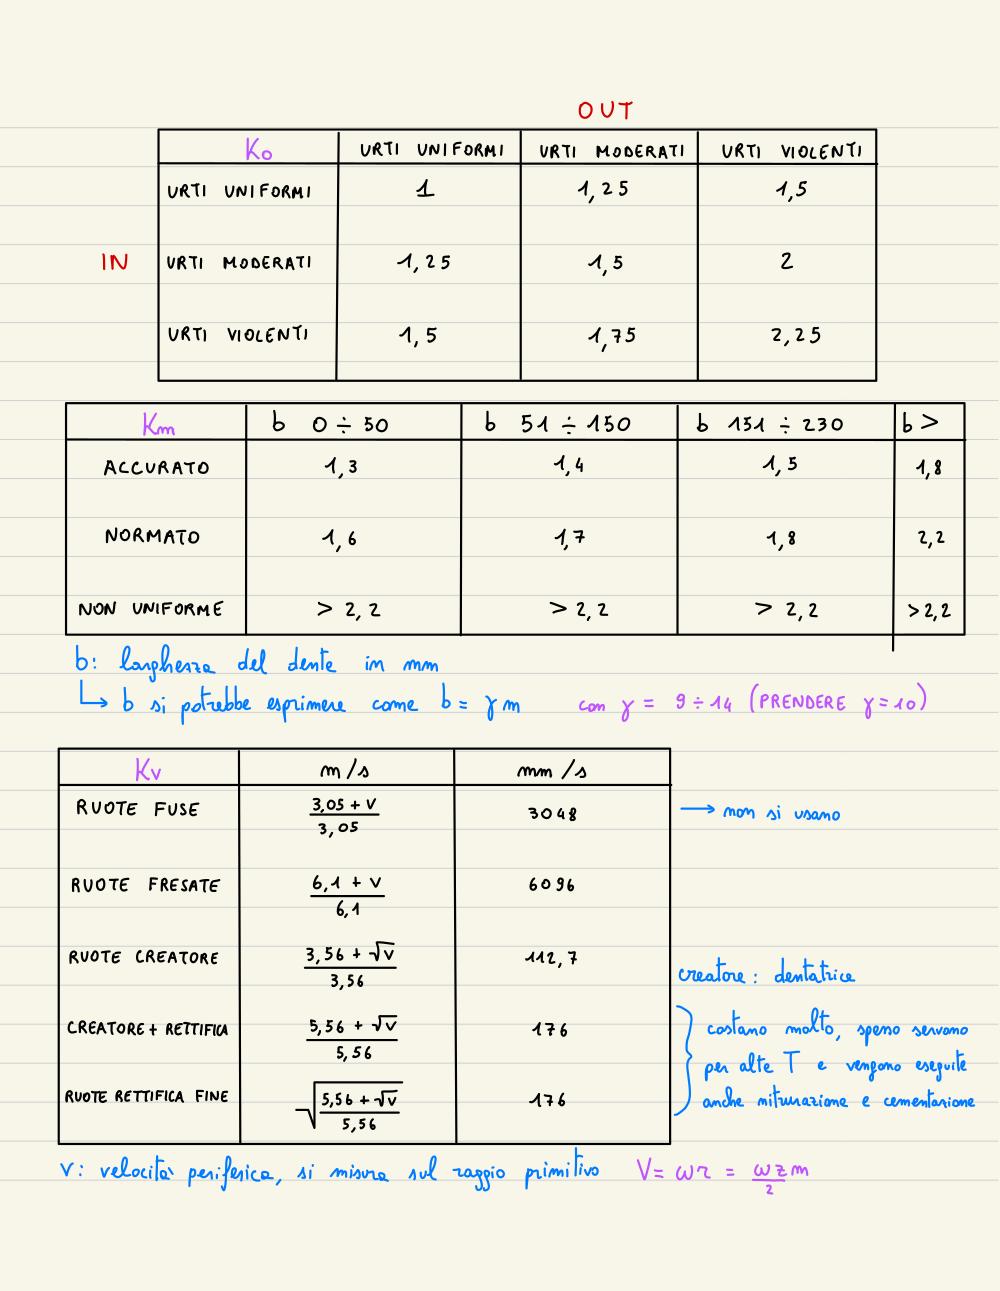 OUT
Ko URTI UNIFORMI URTI MODERATI URTI VIOLENTI
URTI UNIFORMI 1 1,25 1,5
IN URTI MODERATI 1,25 1,5 2
URTI VIOLENTI 1,5 1,75 2,25
Km b 0 ÷ 50 b 51 ÷ 150 b 151 ÷ 230 b >
ACCURATO 1,3 1,4 1,5 1,8
NORMATO 1,6 1,7 1,8 2,2
NON UNIFORME > 2,2 > 2,2 > 2,2 > 2,2
b: larghezza del dente in mm
↳ b si potrebbe esprimere come b = γ m con γ = 9 ÷ 14 (PRENDERE γ = 10)
Kv m/s mm/s
RUOTE FUSE (3,05 + V)/3,05 3048 → non si usano
RUOTE FRESATE (6,1 + V)/6,1 6096
RUOTE CREATORE (3,56 + √V)/3,56 112,7
creatore: dentatrice
CREATORE + RETTIFICA (5,56 + √V)/5,56 176
costano molto, spesso servono
per alte T e vengono eseguite
RUOTE RETTIFICA FINE √((5,56 + √V)/5,56) 176
anche nitrurazione e cementazione
V: velocità periferica, si misura sul raggio primitivo V = ωr = ωz/2 m